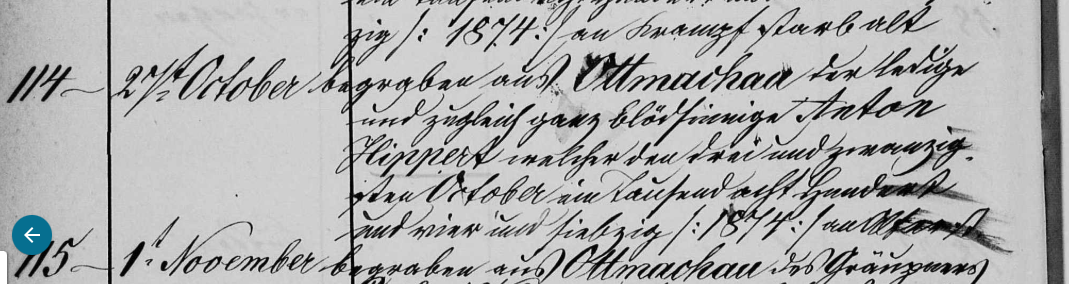 zig /: 1874 :/ an Krampf starb alt
114 27st October begraben aus Ottmachau der ledige
und zugleich ganz blödsinnige Anton
Hippert welcher den drei und zwanzig-
sten October ein Tausend acht Hundert
und vier und siebzig /: 1874 :/ an
115 1t November begraben aus Ottmachau des Gräupners